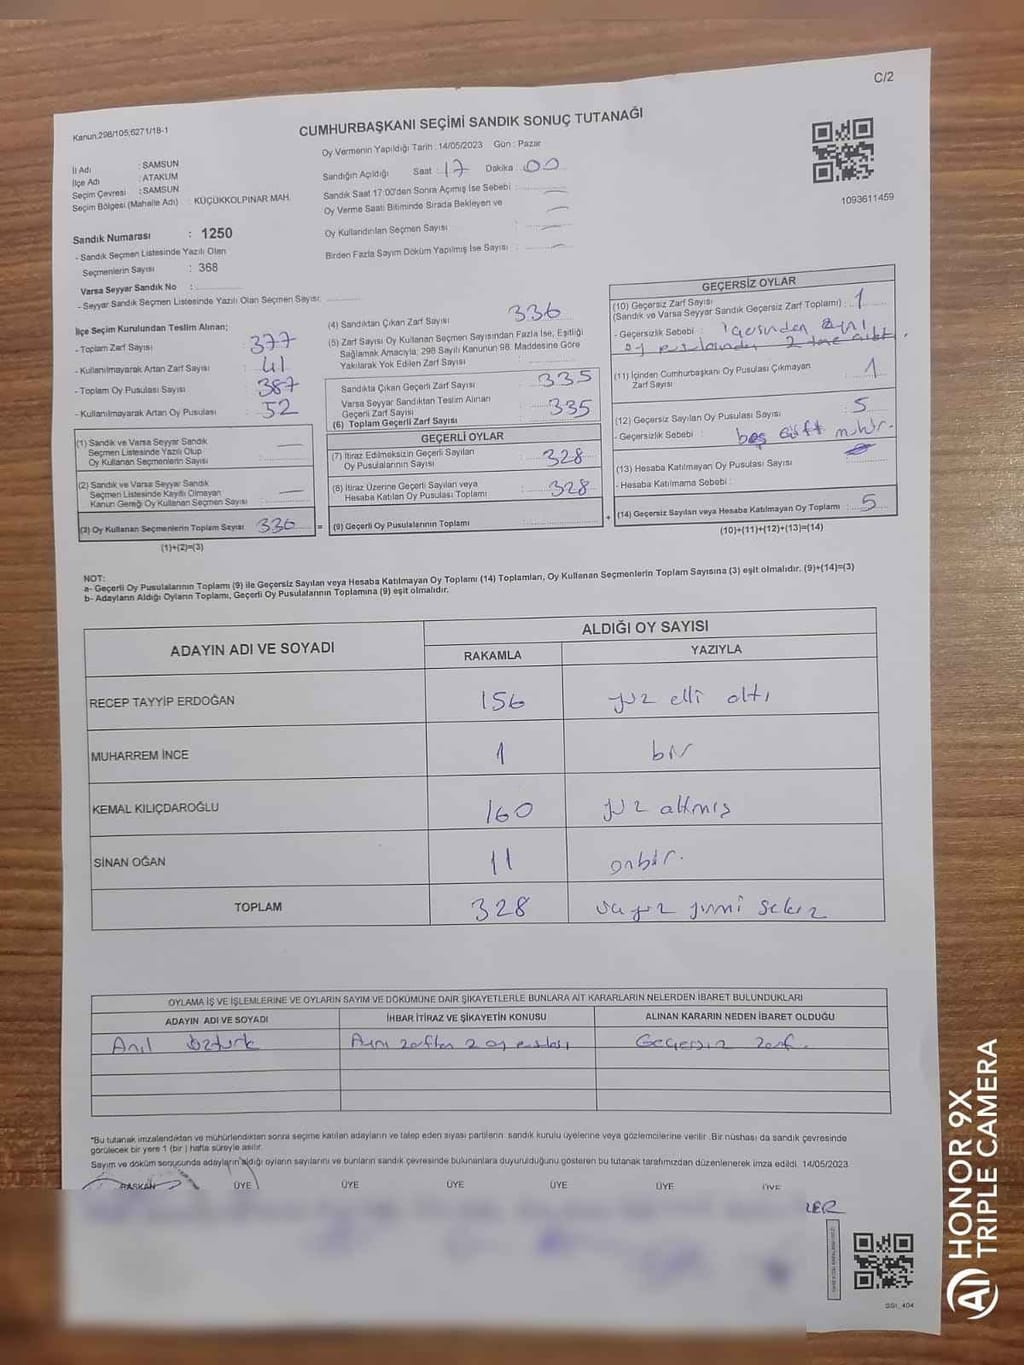 C/2
Kanun,298/105,6271/18-1
CUMHURBAŞKANI SEÇİMİ SANDIK SONUÇ TUTANAĞI
Oy Vermenin Yapıldığı Tarih : 14/05/2023 Gün : Pazar
İl Adı : SAMSUN
İlçe Adı : ATAKUM
Seçim Çevresi : SAMSUN
Seçim Bölgesi (Mahalle Adı) : KÜÇÜKKOLPINAR MAH.
Sandığın Açıldığı Saat : 17 Dakika : 00
Sandık Saat 17:00'den Sonra Açımış İse Sebebi :
Oy Verme Saati Bitiminde Sırada Bekleyen ve
Oy Kullandırılan Seçmen Sayısı :
Birden Fazla Sayım Döküm Yapılmış İse Sayısı :
1093611459
Sandık Numarası : 1250
- Sandık Seçmen Listesinde Yazılı Olan
Seçmenlerin Sayısı : 368
Varsa Seyyar Sandık No :
- Seyyar Sandık Seçmen Listesinde Yazılı Olan Seçmen Sayısı:
İlçe Seçim Kurulundan Teslim Alınan;
- Toplam Zarf Sayısı : 377
- Kullanılmayarak Artan Zarf Sayısı : 41
- Toplam Oy Pusulası Sayısı : 387
- Kullanılmayarak Artan Oy Pusulası : 52
(1) Sandık ve Varsa Seyyar Sandık
Seçmen Listesinde Yazılı Olup
Oy Kullanan Seçmenlerin Sayısı
(2) Sandık ve Varsa Seyyar Sandık
Seçmen Listesinde Kayıtlı Olmayan
Kanun Gereği Oy Kullanan Seçmen Sayısı
(3) Oy Kullanan Seçmenlerin Toplam Sayısı 336 =
(1)+(2)=(3)
(4) Sandıktan Çıkan Zarf Sayısı : 336
(5) Zarf Sayısı Oy Kullanan Seçmen Sayısından Fazla İse, Eşitliği
Sağlamak Amacıyla; 298 Sayılı Kanunun 98. Maddesine Göre
Yakılarak Yok Edilen Zarf Sayısı
Sandıkta Çıkan Geçerli Zarf Sayısı : 335
Varsa Seyyar Sandıktan Teslim Alınan
Geçerli Zarf Sayısı
(6) Toplam Geçerli Zarf Sayısı : 335
GEÇERLİ OYLAR
(7) İtiraz Edilmeksizin Geçerli Sayılan
Oy Pusulalarının Sayısı : 328
(8) İtiraz Üzerine Geçerli Sayılan veya
Hesaba Katılan Oy Pusulası Toplamı : 328
(9) Geçerli Oy Pusulalarının Toplamı : +
GEÇERSİZ OYLAR
(10) Geçersiz Zarf Sayısı
(Sandık ve Varsa Seyyar Sandık Geçersiz Zarf Toplamı) : 1
- Geçersizlik Sebebi : içerisinden aynı
oy pusulasından 2 tane çıktı.
(11) İçinden Cumhurbaşkanı Oy Pusulası Çıkmayan
Zarf Sayısı : 1
(12) Geçersiz Sayılan Oy Pusulası Sayısı : 5
- Geçersizlik Sebebi : beş çift mühür.
(13) Hesaba Katılmayan Oy Pusulası Sayısı :
- Hesaba Katılmama Sebebi :
(14) Geçersiz Sayılan veya Hesaba Katılmayan Oy Toplamı : 5
(10)+(11)+(12)+(13)=(14)
NOT:
a- Geçerli Oy Pusulalarının Toplamı (9) ile Geçersiz Sayılan veya Hesaba Katılmayan Oy Toplamı (14) Toplamları, Oy Kullanan Seçmenlerin Toplam Sayısına (3) eşit olmalıdır. (9)+(14)=(3)
b- Adayların Aldığı Oyların Toplamı, Geçerli Oy Pusulalarının Toplamına (9) eşit olmalıdır.
ADAYIN ADI VE SOYADI ALDIĞI OY SAYISI
RAKAMLA YAZIYLA
RECEP TAYYİP ERDOĞAN 156 yüz elli altı
MUHARREM İNCE 1 bir
KEMAL KILIÇDAROĞLU 160 yüz altmış
SİNAN OĞAN 11 onbir.
TOPLAM 328 üç yüz yirmi sekiz
OYLAMA İŞ VE İŞLEMLERİNE VE OYLARIN SAYIM VE DÖKÜMÜNE DAİR ŞİKAYETLERLE BUNLARA AİT KARARLARIN NELERDEN İBARET BULUNDUKLARI
ADAYIN ADI VE SOYADI İHBAR İTİRAZ VE ŞİKAYETİN KONUSU ALINAN KARARIN NEDEN İBARET OLDUĞU
Anıl Öztürk Aynı zarftan 2 oy pusulası Geçersiz zarf.
*Bu tutanak imzalandıktan ve mühürlendikten sonra seçime katılan adayların ve talep eden siyasi partilerin sandık kurulu üyelerine veya gözlemcilerine verilir. Bir nüshası da sandık çevresinde
görülecek bir yere 1 (bir ) hafta süreyle asılır.
Sayım ve döküm sonucunda adayların aldığı oyların sayılarını ve bunların sandık çevresinde bulunanlara duyurulduğunu gösteren bu tutanak tarafımızdan düzenlenerek imza edildi. 14/05/2023
BAŞKAN ÜYE ÜYE ÜYE ÜYE ÜYE ÜYE
HONOR 9X
TRIPLE CAMERA
AI